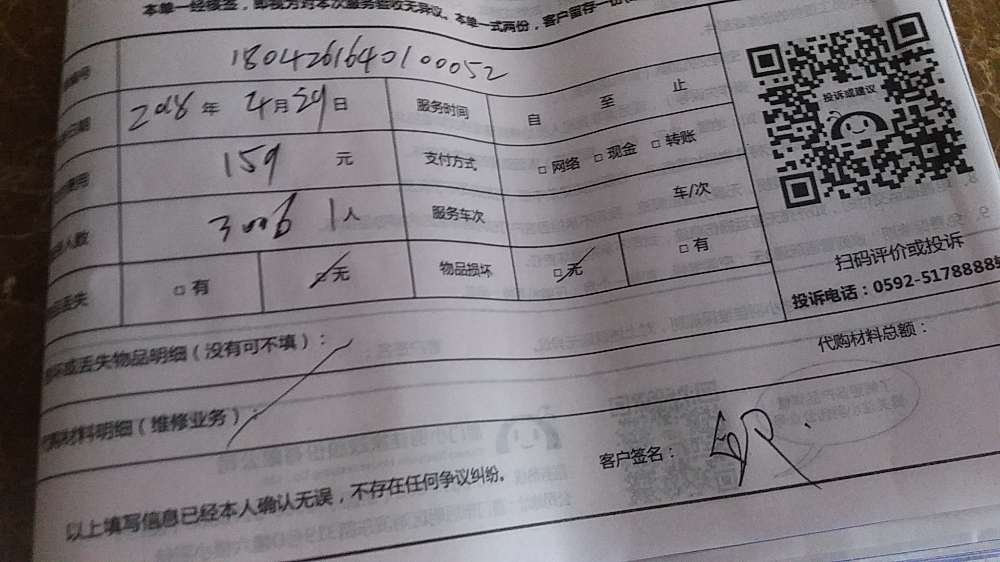 本单一经核签，即视为对本次服务验收无异议。本单一式两份，客户留存一份
编号 180426164010052
日期 2018 年 4 月 29 日 服务时间 自 至 止
费用 159 元 支付方式 □ 网络 □ 现金 □ 转账
人数 3006 1人 服务车次 车/次
丢失 □ 有 □ 无 物品损坏 □ 无 □ 有
投诉或建议
扫码评价或投诉
投诉电话：0592-5178888
坏或丢失物品明细（没有可不填）：
代购材料总额：
材料明细（维修业务）：
以上填写信息已经本人确认无误，不存在任何争议纠纷。 客户签名：